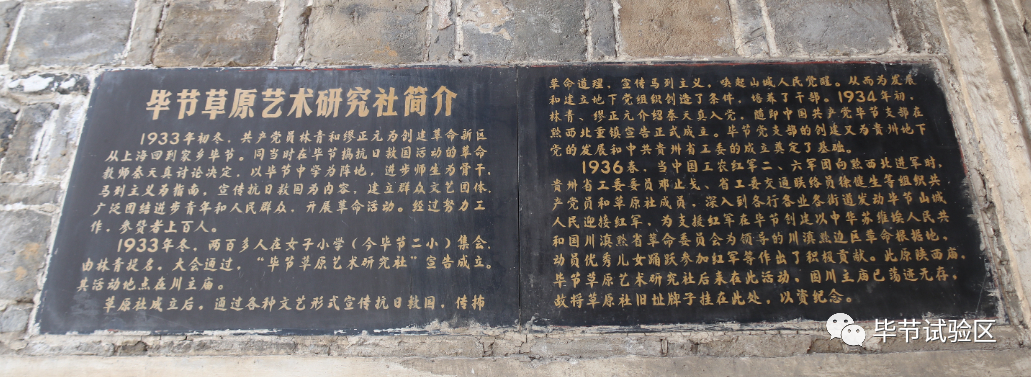 毕节草原艺术研究社简介
1933年初冬，共产党员林青和缪正元为创建革命新区
从上海回到家乡毕节。同当时在毕节搞抗日救国活动的革命
教师秦天真讨论决定，以毕节中学为阵地，进步师生为骨干，
马列主义为指南，宣传抗日救国为内容，建立群众文艺团体，
广泛团结进步青年和人民群众，开展革命活动。经过努力工
作，参赞者上百人。
1933年冬，两百多人在女子小学（今毕节二小）集会，
由林青提名，大会通过，“毕节草原艺术研究社”宣告成立。
其活动地点在川主庙。
草原社成立后，通过各种文艺形式宣传抗日救国，传播
革命道理，宣传马列主义，唤起山城人民觉醒。从而为发展
和建立地下党组织创造了条件，培养了干部。1934年初，
林青、缪正元介绍秦天真入党，随即中国共产党毕节支部在
黔西北重镇宣告正式成立。毕节党支部的创建又为贵州地下
党的发展和中共贵州省工委的成立奠定了基础。
1936春，当中国工农红军二、六军团向黔西北进军时，
贵州省工委委员邓止戈、省工委交通联络员徐健生等组织共
产党员和草原社成员，深入到各行各业各街道发动毕节山城
人民迎接红军，为支援红军在毕节创建以中华苏维埃人民共
和国川滇黔省革命委员会为领导的川滇黔边区革命根据地，
动员优秀儿女踊跃参加红军等作出了积极贡献。此原陕西庙，
毕节草原艺术研究社后来在此活动，因川主庙已荡近无存，
故将草原社旧址牌子挂在此处，以资纪念。
毕节试验区